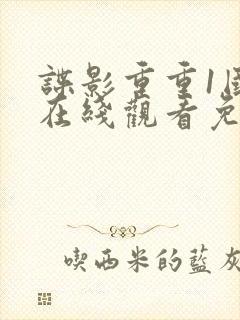 諜影重重1
在綫觀看免
喫西米的藍灰